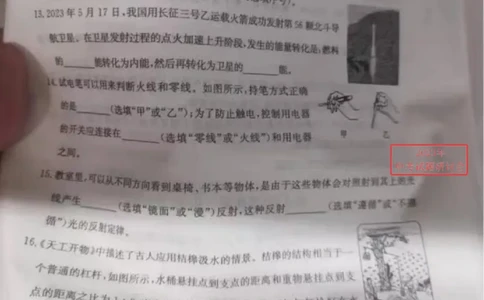 13. 2023年5月17日,我国用长征三号乙运载火箭成功发射第56颗北斗导
航卫星。在卫星发射过程的点火加速上升阶段,发生的能量转化是:燃料
的____能转化为内能,然后再转化为卫星的____能。
14. 试电笔可以用来判断火线和零线。如图所示,持笔方式正确
的是____(选填“甲”或“乙”);为了防止触电,控制用电器
的开关应连接在____(选填“零线”或“火线”)和用电器
之间。
甲 乙
15. 教室里,可以从不同方向看到桌椅、书本等物体,是由于这些物体会对照射到其上的光
线产生____(选填“镜面”或“漫”)反射,这种反射____(选填“遵循”或“不遵
循”)光的反射定律。
16.《天工开物》中描述了古人应用桔槔汲水的情景。桔槔的结构相当于一
个普通的杠杆,如图所示,水桶悬挂点到支点的距离和重物悬挂点到支
点的距离之比为